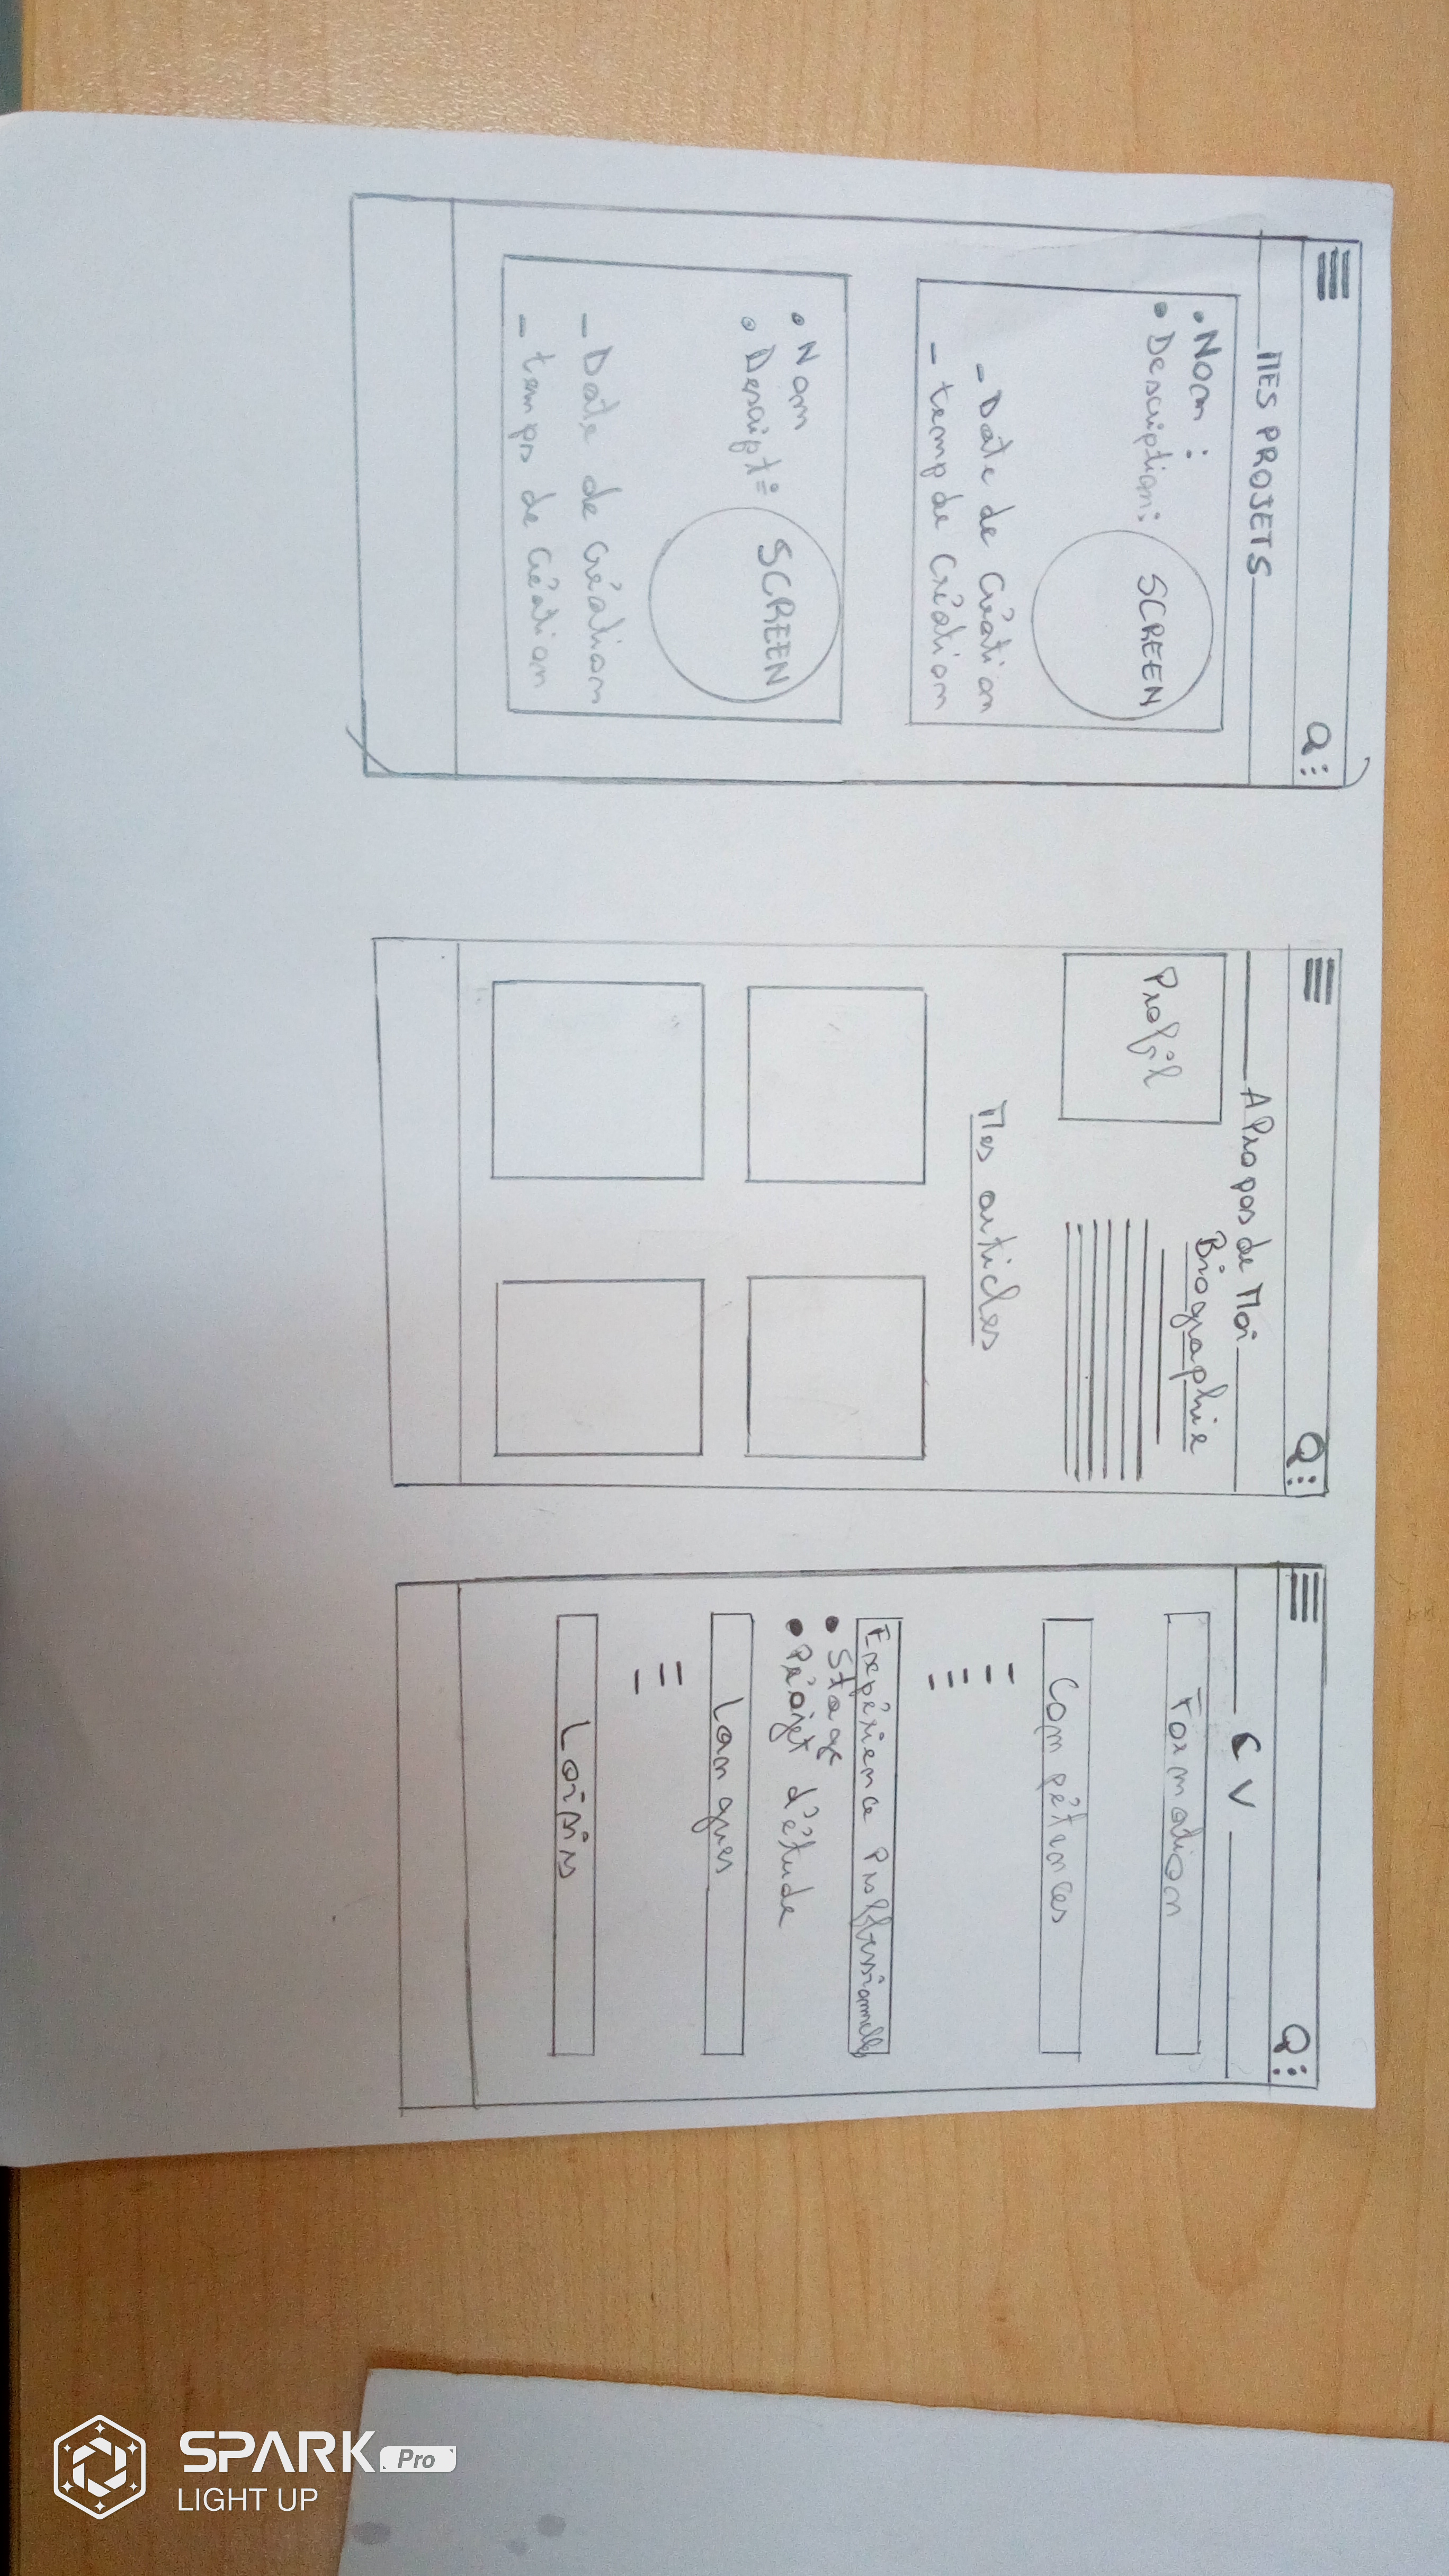 MES PROJETS
• Nom :
• Description :
SCREEN
- Date de création
- temp de création
• Nom
• Descript :
SCREEN
- Date de création
- temps de création
A Propos de Moi
Profil
Biographie
Mes articles
CV
Formation
Compétences
Expérience Professionnelle
• Stage
• Projet d'étude
Langues
Loisirs
SPARK Pro
LIGHT UP